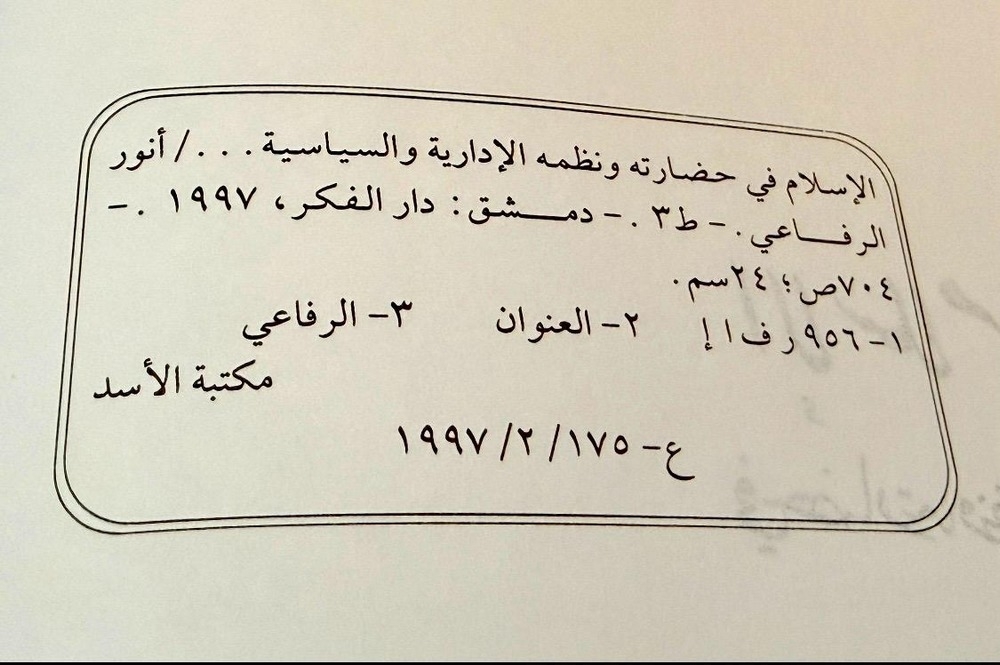 الإسلام في حضارته ونظمه الإدارية والسياسية . . . / أنور
الرفـاعي . - ط٣ . - دمـشق : دار الفكر ، ١٩٩٧ . -
٧٠٤ص ؛ ٢٤سم .
١- ٩٥٦ ر ف ا إ ٢- العنوان ٣- الرفاعي
مكتبة الأسد
ع- ١٩٩٧/٢/١٧٥